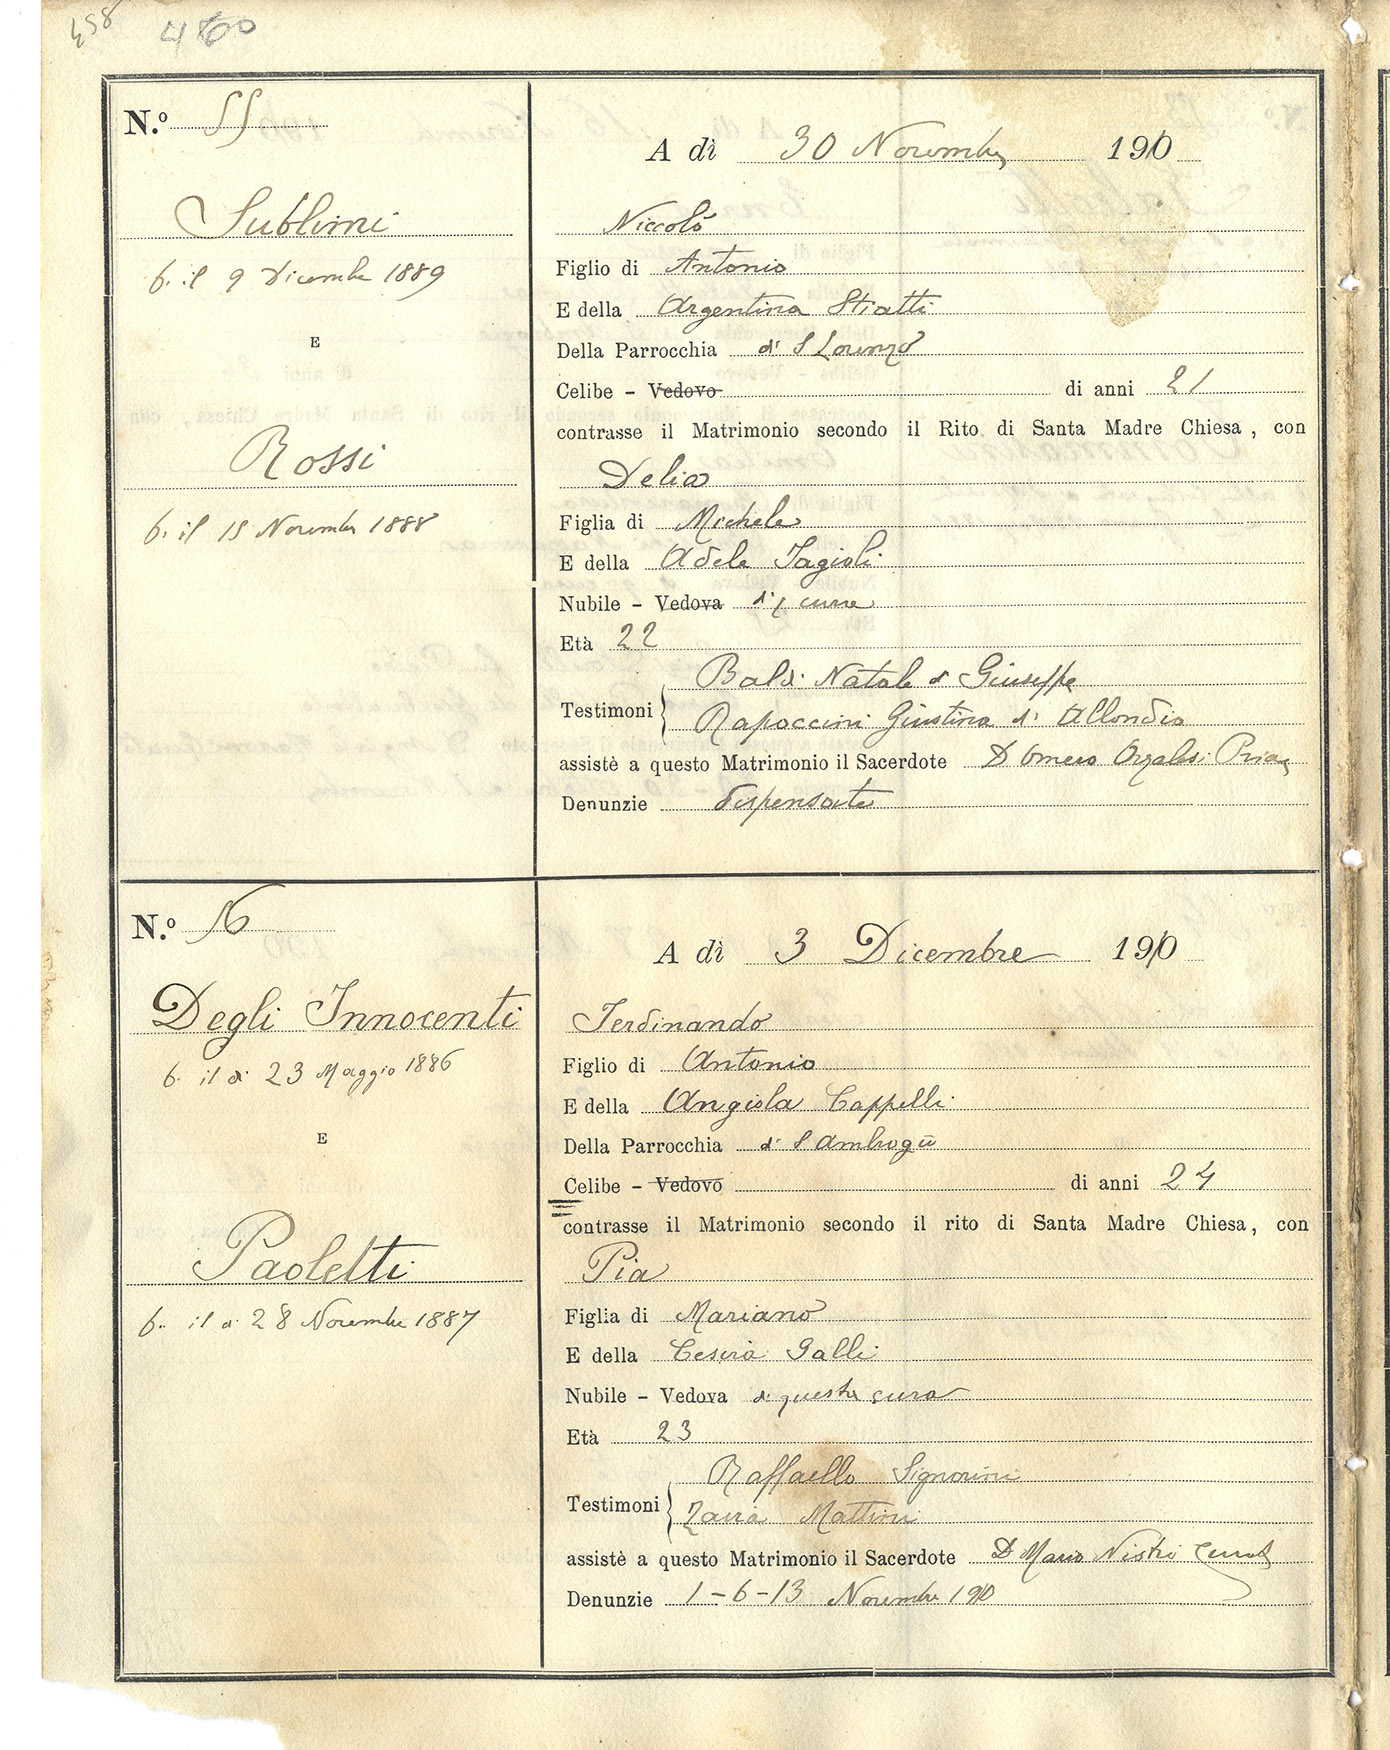 458 460
N.o 55
Sublimi
b. il 9 Dicembre 1889
E
Rossi
b. il 15 Novembre 1888
A dì 30 Novembre 1910
Niccolò
Figlio di Antonio
E della Argentina Stiatti
Della Parrocchia di S Lorenzo
Celibe - Vedovo di anni 21
contrasse il Matrimonio secondo il Rito di Santa Madre Chiesa, con
Delia
Figlia di Michele
E della Adele Fagioli
Nubile - Vedova di q cura
Età 22
Baldi Natale di Giuseppe
Testimoni Rapaccini Giustina di
assistè a questo Matrimonio il Sacerdote D Omero Orzalesi
Denunzie dispensate
N.o 56
Degli Innocenti
b. il dì 23 Maggio 1886
E
Paoletti
b. il dì 28 Novembre 1887
A dì 3 Dicembre 1910
Ferdinando
Figlio di Antonio
E della Angiola Cappelli
Della Parrocchia di S Ambrogio
Celibe - Vedovo di anni 24
contrasse il Matrimonio secondo il rito di Santa Madre Chiesa, con
Pia
Figlia di Mariano
E della Cesira Galli
Nubile - Vedova di questa cura
Età 23
Raffaello Signorini
Testimoni Zaira Mattini
assistè a questo Matrimonio il Sacerdote D Mario Nistri Curato
Denunzie 1-6-13 Novembre 1910